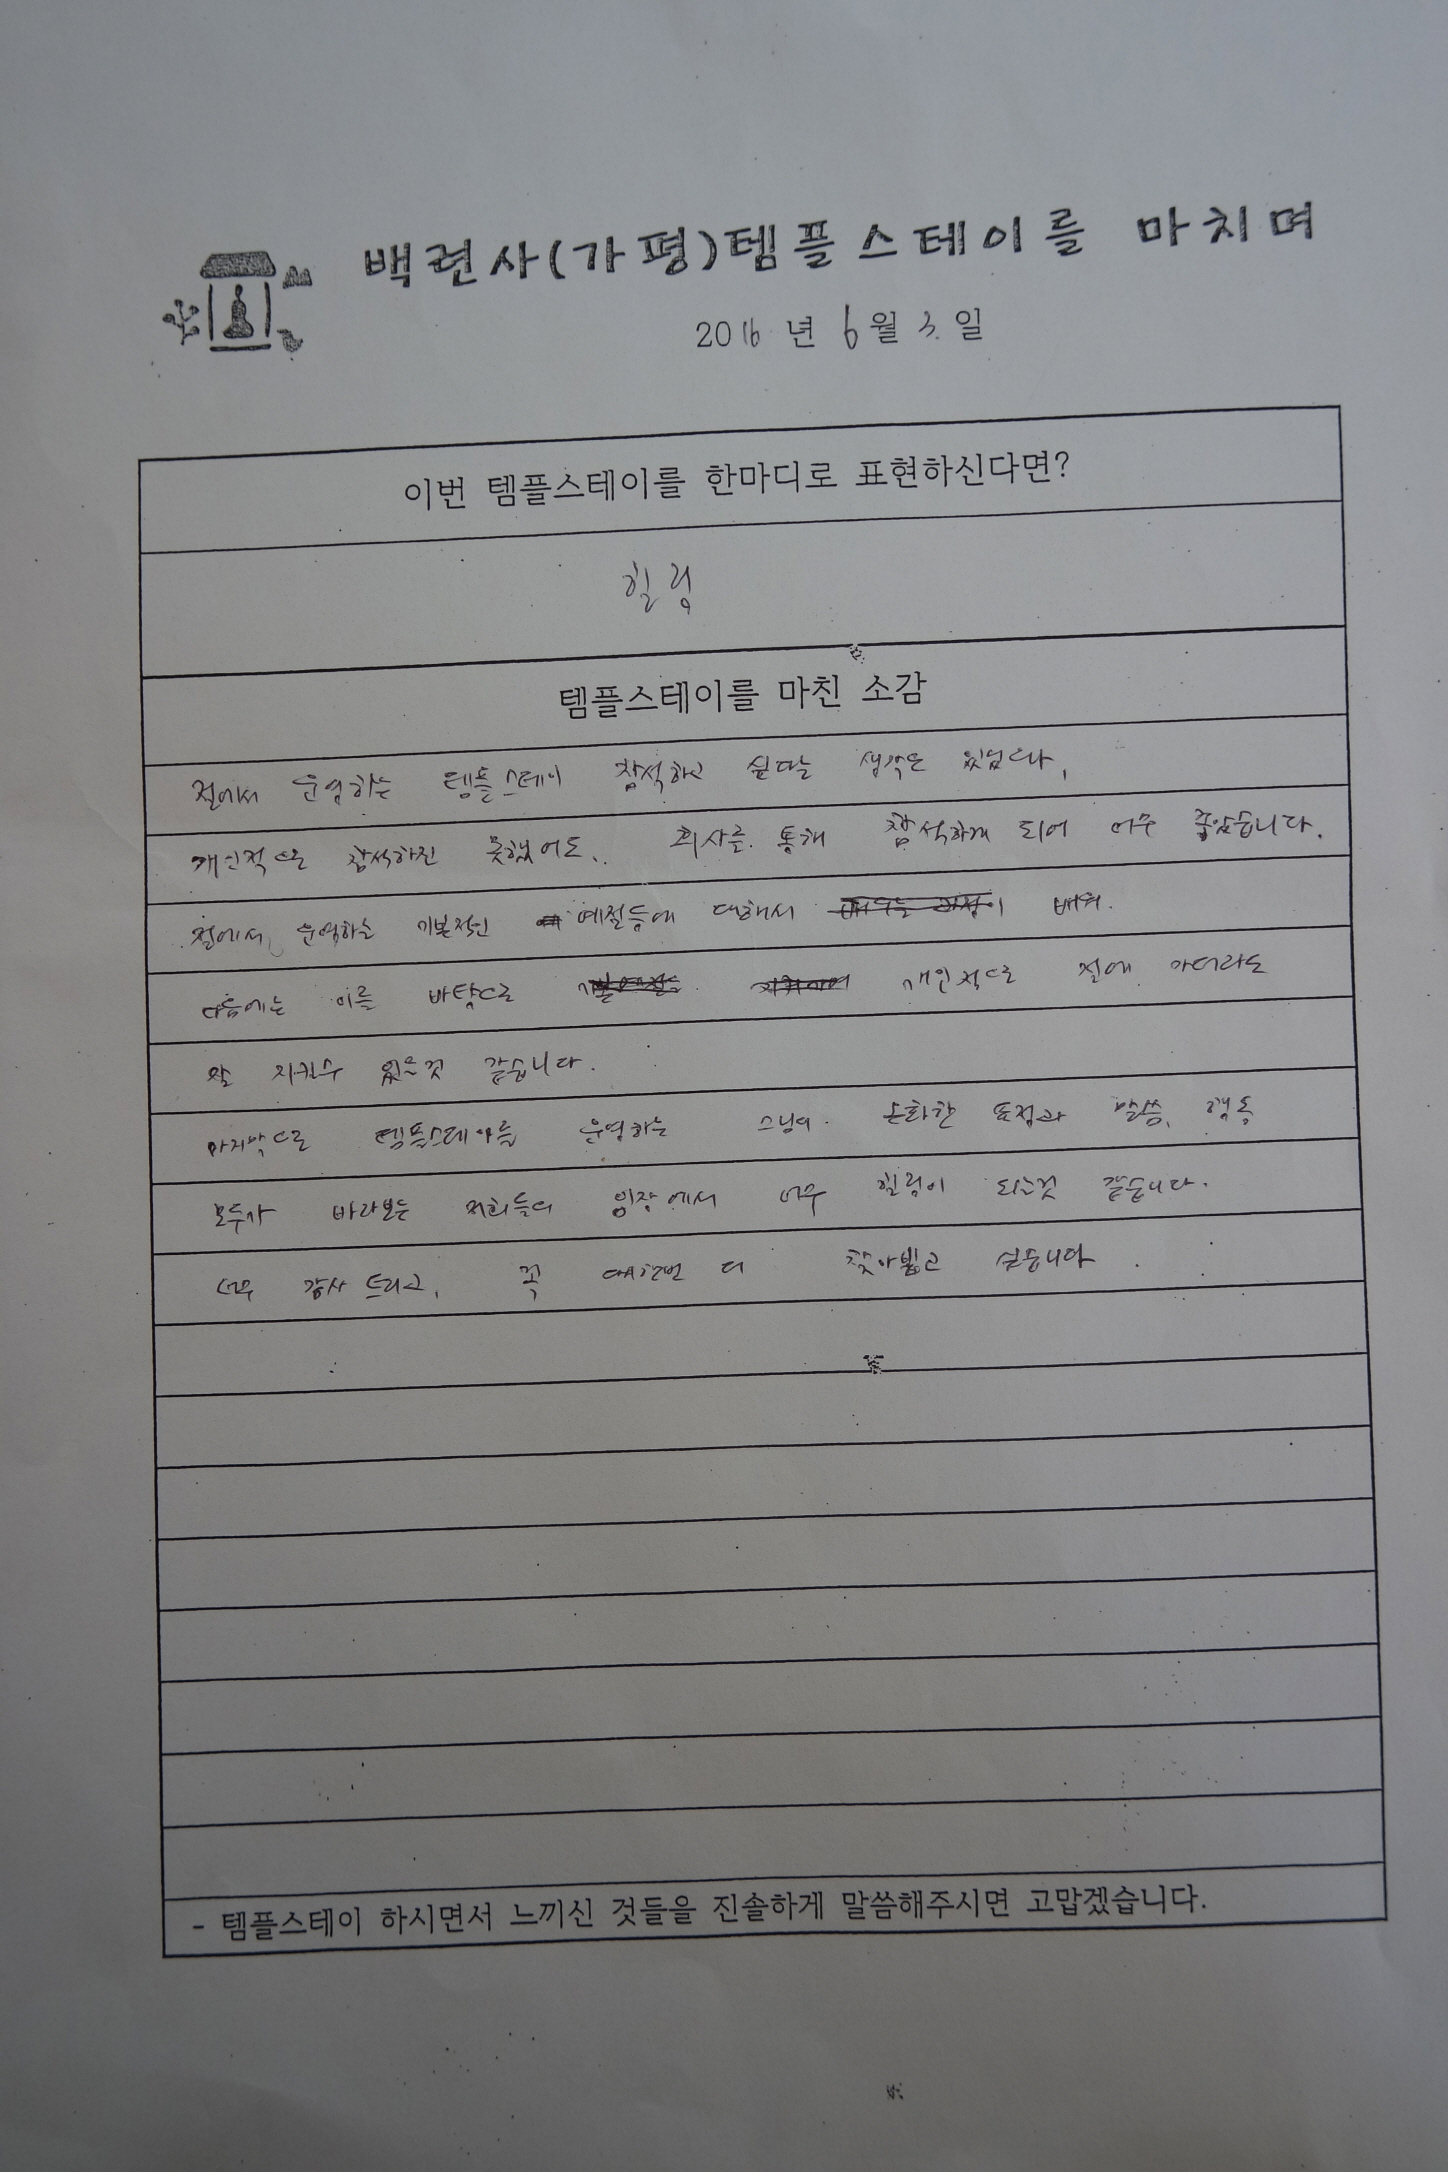 백련사(가평)템플스테이를 마치며
2016 년 6월 3일
이번 템플스테이를 한마디로 표현하신다면?
힐링
템플스테이를 마친 소감
절에서 운영하는 템플스테이 참석하고 싶다는 생각은 있었으나,
개인적으론 참석하진 못했어도, 회사를 통해 참석하게 되어 너무 좋았습니다.
절에서 운영하는 기본적인 예절등에 대해서 배워.
다음에는 이를 바탕으로 개인적으로 절에 가더라도
잘 지킬수 있는것 같습니다.
마지막으로 템플스테이를 운영하는 스님의 온화한 표정과 말씀, 행동
모두가 바라보는 저희들의 입장에서 너무 힐링이 되는것 같습니다.
너무 감사 드리고, 꼭 다시한번 더 찾아뵙고 싶습니다.
- 템플스테이 하시면서 느끼신 것들을 진솔하게 말씀해주시면 고맙겠습니다.